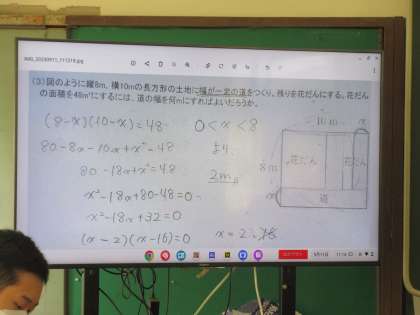 (3)図のように縦8m、横10mの長方形の土地に幅が一定の道をつくり、残りを花だんにする。花だん
の面積を48m²にするには、道の幅を何mにすればよいだろうか。
(8-x)(10-x)=48
80-8x-10x+x²=48
80-18x+x²=48
x²-18x+80-48=0
x²-18x+32=0
(x-2)(x-16)=0
0<x<8
より、
2m
x=2
10m
x
8m
花だん
花だん
x
道